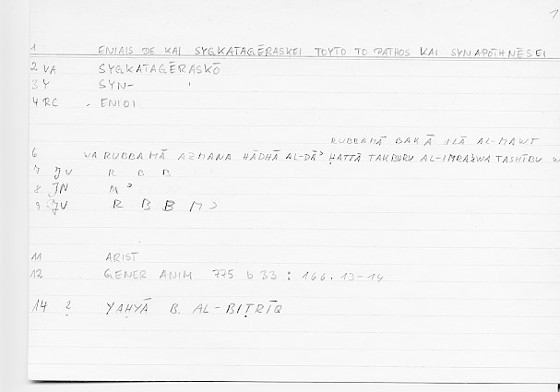 1
1 ENIAIS DE KAI SYGKATAGĒRASKEI TOYTO TO PATHOS KAI SYNAPOTHNĒSEI
2 VA SYGKATAGĒRASKŌ
3 Y SYN-
4 RC ENIOI
RUBBAMĀ BAKĀ ILĀ AL-MAWT
6 WA RUBBAMĀ AZMANA HĀDHĀ AL-DĀʾ ḤATTĀ TAKBURU AL-IMRAʾWA TASHĪBU W
7 JV R B B
8 JN M ʾ
9 JV R B B M ʾ
11 ARIST
12 GENER ANIM 775 b 33 : 166.13-14
14 ? YAḤYĀ B. AL-BIṬRĪQ